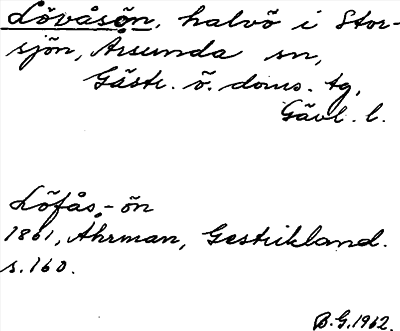 Lövåsön, halvö i Stor-
sjön, Årsunda sn,
Gästr. ö. doms. tg,
Gävl. l.
Löfås-ön
1861, Åhrman, Gestrikland.
s. 160.
B.G. 1962.